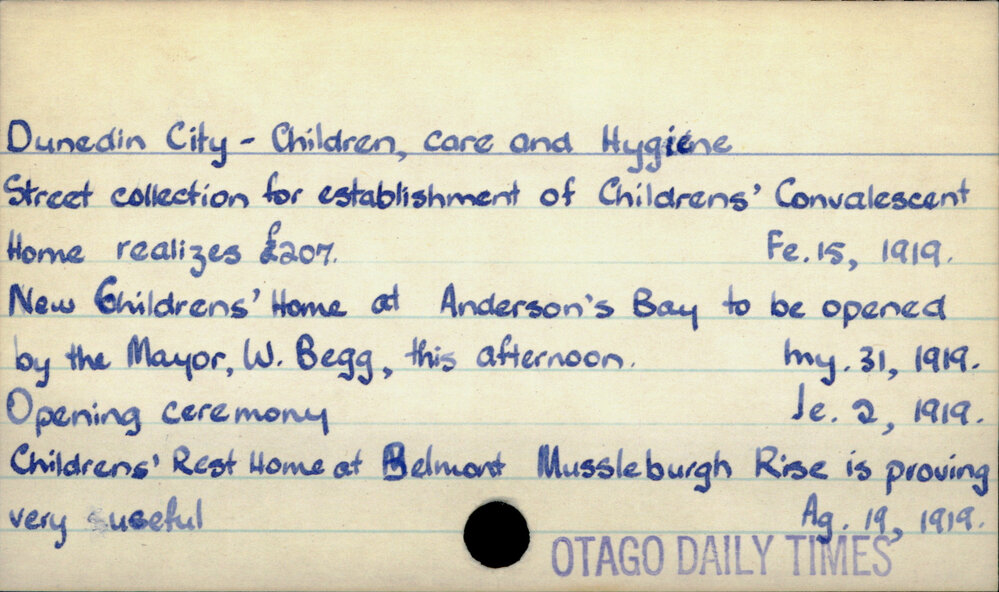 Dunedin City - Children, care and Hygiene
Street collection for establishment of Childrens' Convalescent
Home realizes £207. Fe. 15, 1919.
New Childrens' Home at Anderson's Bay to be opened
by the Mayor, W. Begg, this afternoon. My. 31, 1919.
Opening ceremony Je. 2, 1919.
Childrens' Rest Home at Belmont Mussleburgh Rise is proving
very useful Ag. 19, 1919.
OTAGO DAILY TIMES